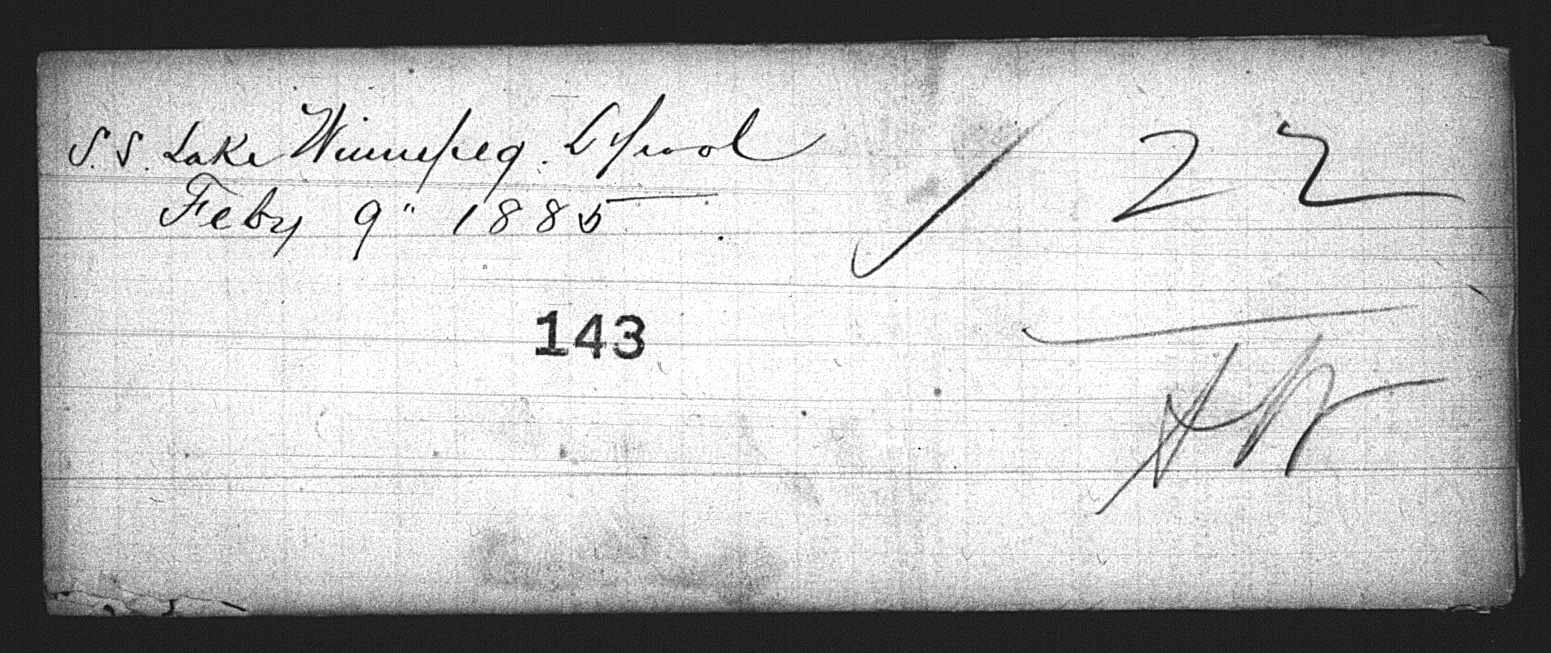 S.S. Lake Winnepeg. L'pool
Feby 9" 1885
22
143